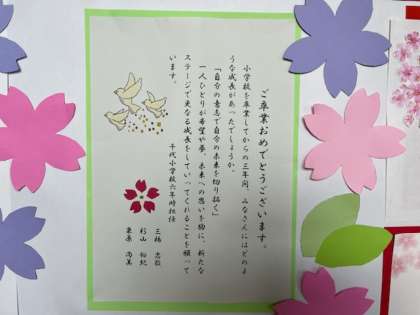 ご卒業おめでとうございます。
小学校を卒業してからの三年間、みなさんにはどのよ
うな成長があったでしょうか。
「自分の意志で自分の未来を切り拓く」
一人ひとりが希望や夢、未来への思いを胸に、新たな
ステージで更なる成長をしていってくれることを願って
います。
千代小学校六年時担任
三橋
杉山 裕紀
栗原 尚美